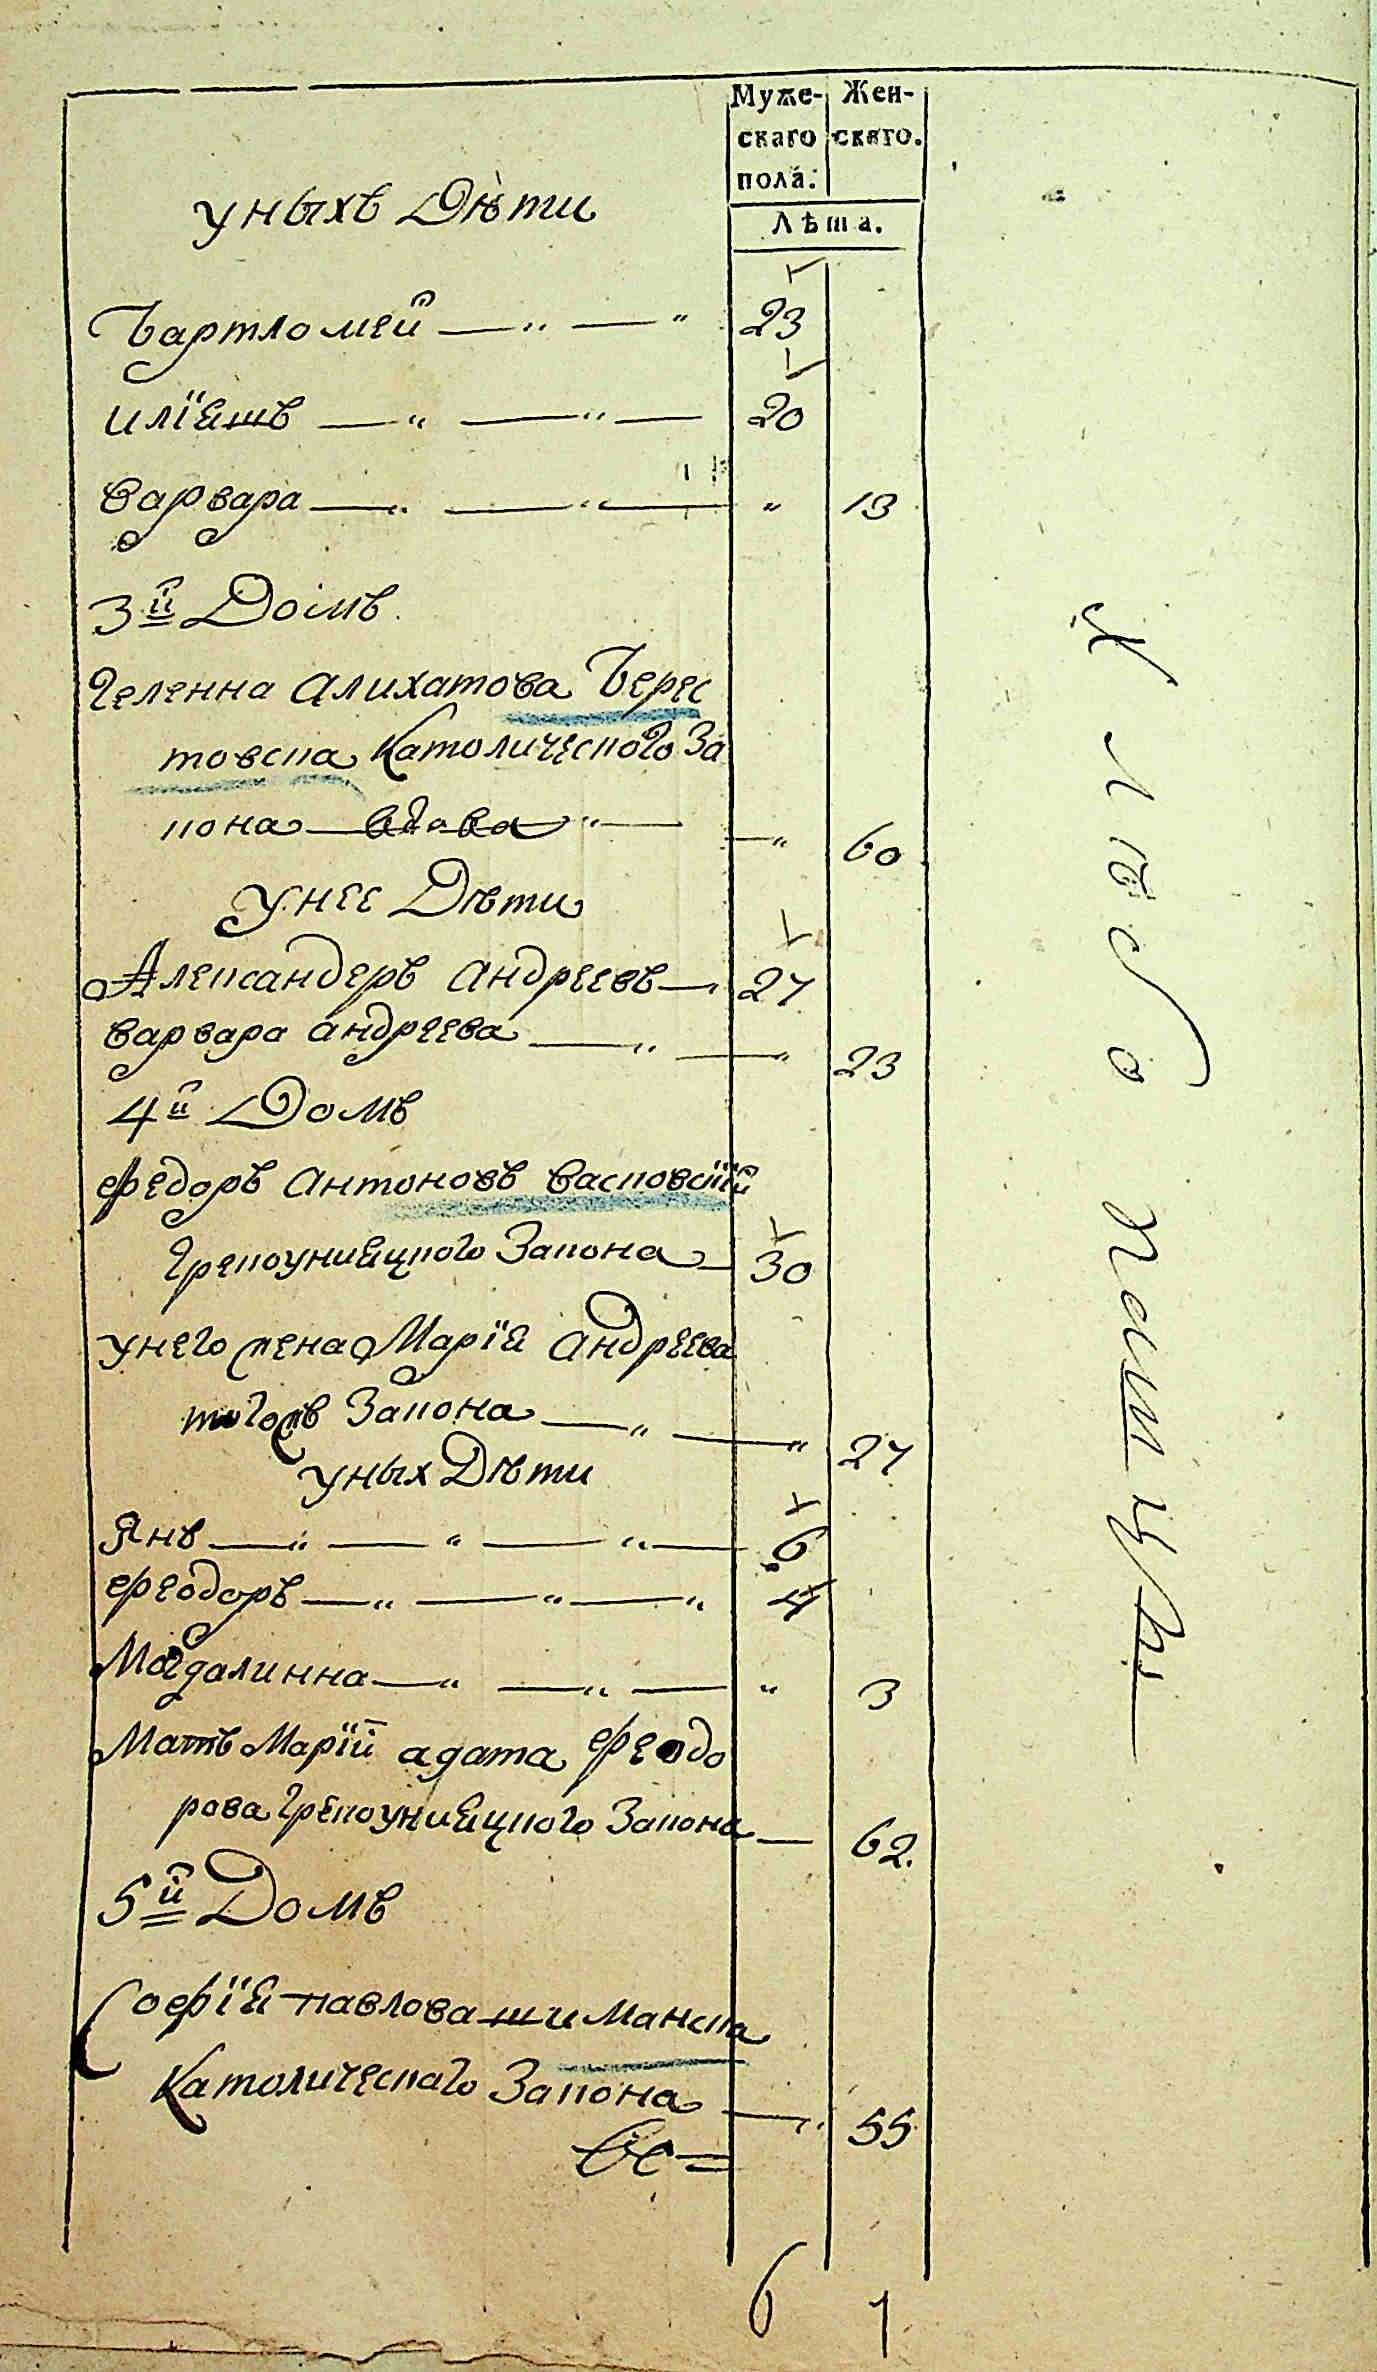 Муже-
скаго
пола.
Жен-
скаго.
Лѣта.
уныхъ Дѣти
Бартломей — " — " 23
илїяшъ — " — " — 20
варвара — " — " — " 13
3й Домъ
Геленна Алихатова Берес
товска Католического За
кона вдова " — — " 60
унее Дѣти
Александеръ Андреевъ — " 27
варвара андреева — " — " 23
4й Домъ
Федоръ Антоновъ Васковскїй
Грекоунияцкого Закона — 30
унего жена Марїя Андреева
тогожъ Закона — " — " 27
уных Дѣти
Янъ — " — " — " — 6
Феодоръ — " — " — " 4
Магдалинна — " — " — " 3
Мать Марїй агата Феодо
рова Грекоунияцкого Закона — 62.
5й Домъ
Софїя павлова шиманска
Католическаго Закона — " 55
6 7